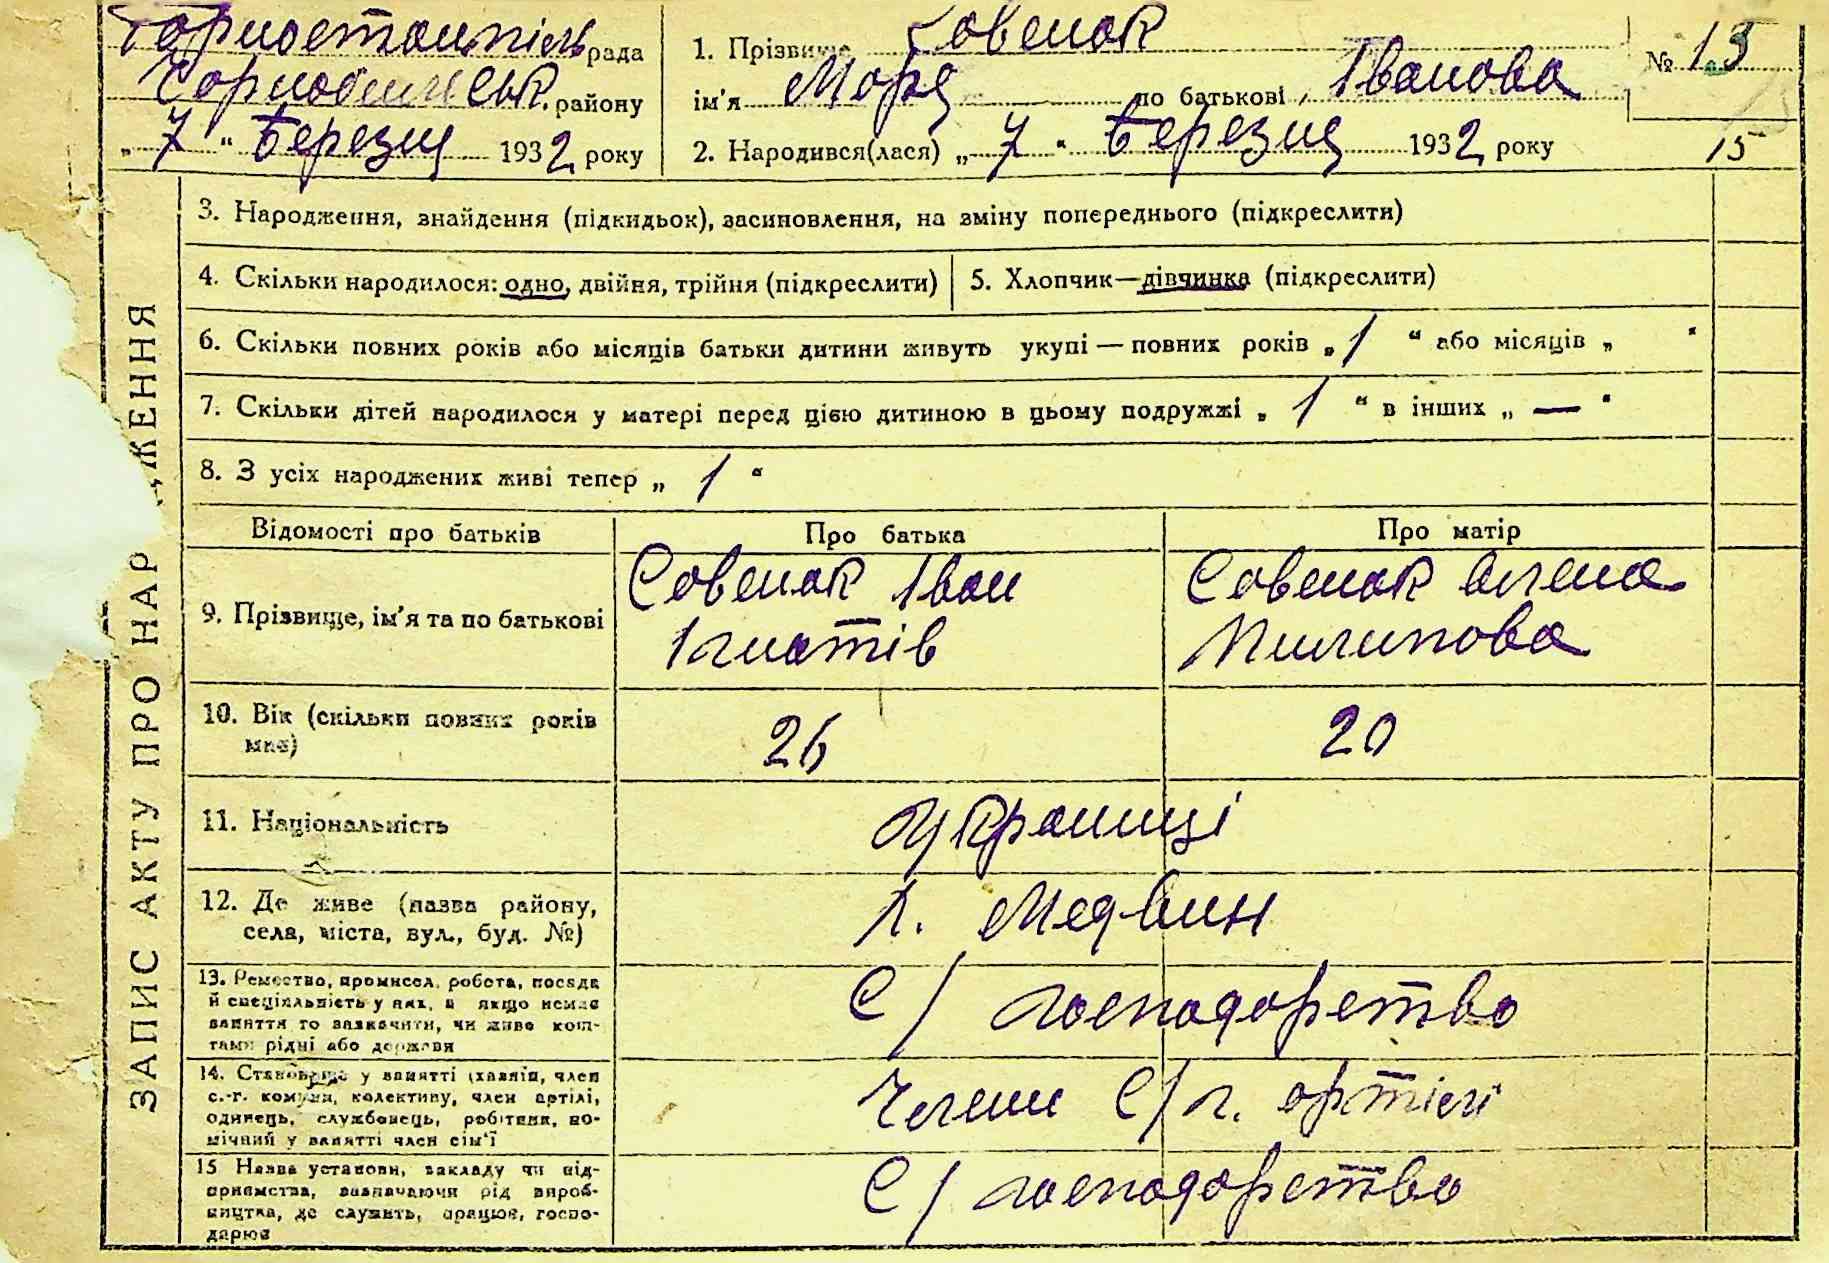 Горностайпіль рада
Чорнобильськ. району
„ 7 “ Березня 1932 року
1. Прізвище Совенок
ім'я Маря по батькові Іванова
2. Народився(лася) „ 7 “ Березня 1932 року
№ 13
15
ЗАПИС АКТУ ПРО НАР ДЖЕННЯ
3. Народження, знайдення (підкидьок), засиновлення, на зміну попереднього (підкреслити)
4. Скільки народилося: одно, двійня, трійня (підкреслити)
5. Хлопчик—дівчинка (підкреслити)
6. Скільки повних років або місяців батьки дитини живуть укупі — повних років „ 1 “ або місяців „ “
7. Скільки дітей народилося у матері перед цією дитиною в цьому подружжі „ 1 “ в інших „ — “
8. З усіх народжених живі тепер „ 1 “
Відомості про батьків
Про батька
Про матір
9. Прізвище, ім'я та по батькові
Совенок Іван
Ігнатів
Совенок Олена
Пилипова
10. Вік (скільки повних років
має)
26
20
11. Національність
Українці
12. Де живе (назва району,
села, міста, вул., буд. №)
х. Медвин
13. Ремество, промисел, робота, посада
й спеціяльність у них, а якщо немає
заняття то зазначити, чи живе кош-
тами рідні або держави
С/господарство
14. Становище у занятті (хазяїн, член
с.-г. комуни, колективу, член артілі,
одинець, службовець, робітник, по-
мічний у занятті член сім'ї
Члени С/г. артілі
15 Назва установи, закладу чи під-
приємства, зазначаючи рід вироб-
ництва, де служить, працює, госпо-
дарює
С/господарство